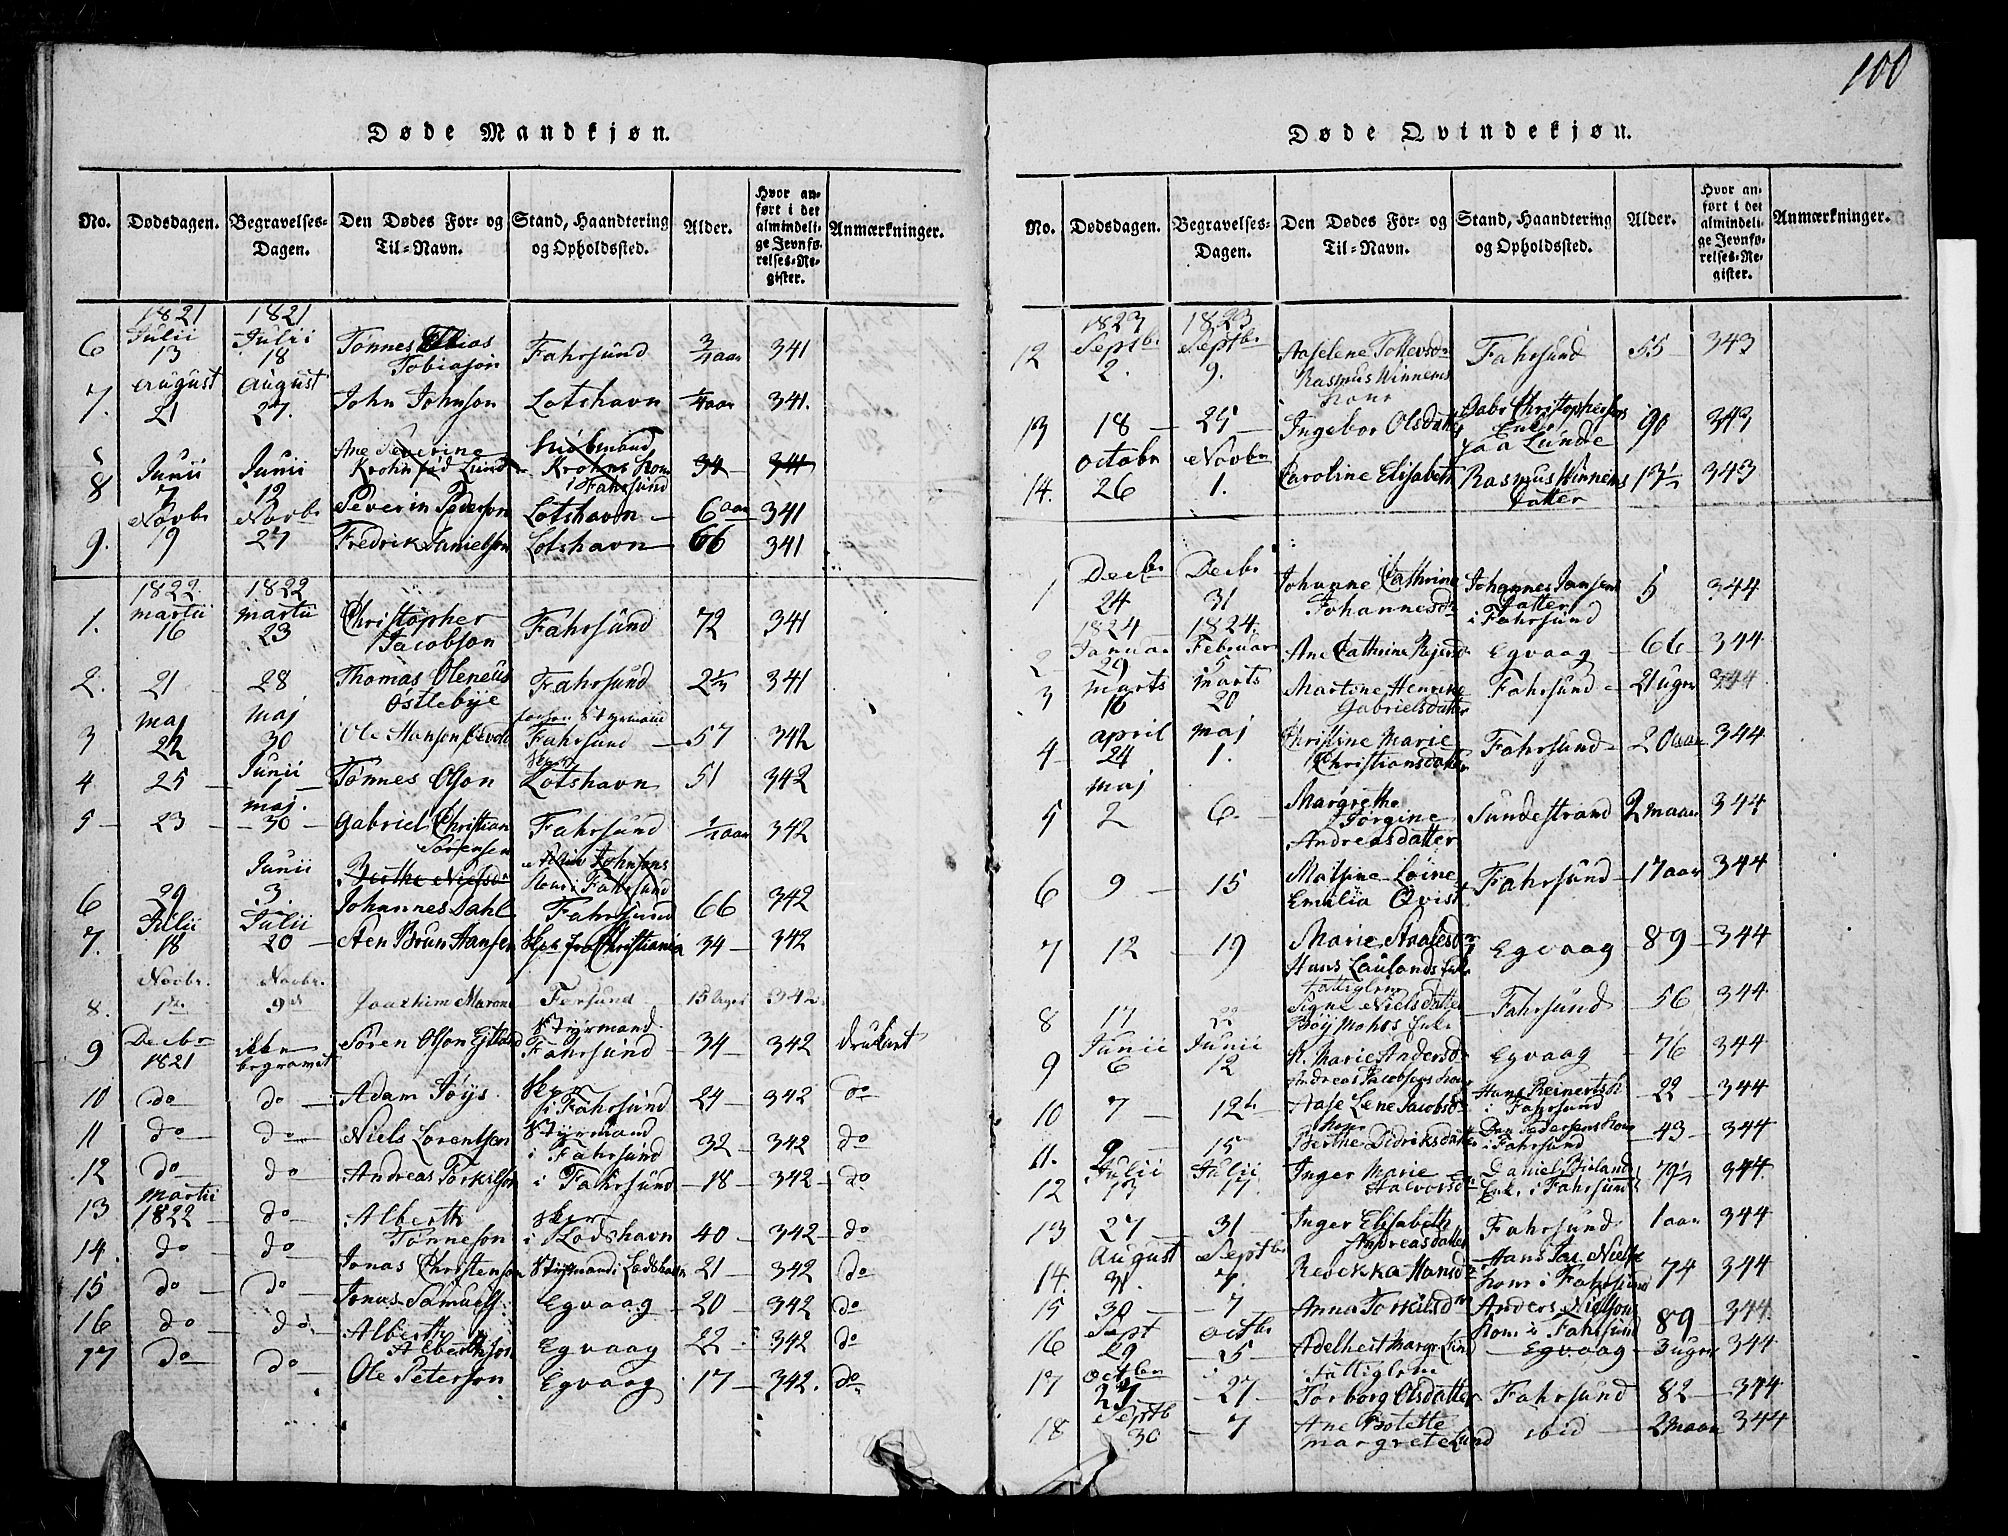 100
Døde Mandkjøn.
No. Dødsdagen. Begravelses-Dagen. Den Dødes For- og Til-Navn. Stand, Haandtering og Opholdssted. Alder. Hvor anført i det almindelige Jevnførelses-Register. Anmærkninger.
1821 1821
6 Julii 13 Julii 18 Tønnes Tobiason Fahrsund 3/4 aar 341
7. August 21 August 27. John Johnson Lotshavn 1/4 aar 341.
Ane Severine Krohn fød Lund Krohns Kone i Fahrsund 34 341
8 Junii 7 Junii 12 Peverin Pederson Lotshavn 6 aar 341
9. Novbr 19 Novbr 27 Fredrik Danielson Lotshavn 66 341
1822 1822
1. Martii 16 Martii 23 Christopher Jacobson Fahrsund 72 341
2. 21 28 Thomas Oleneus Østlebÿe Fahrsund 2 1/3 341
3 Maj 22 Maj 30 Ole Hanson Styrmand Fahrsund 57 342
4 25 Junii 1 Tønnes Olson Skpr Lotshavn 51 342
5 23 Maj. 30 Gabriel Christian Sørensen Fahrsund 1/4 aar 342
Berthe Nielsdr Johnsons Kone i Fahrsund
6 29 Junii 3. Johannes Dahl Fahrsund 66 342
7. Julii 18 Julii 20 Sten Brun Hansen Skpr fra Christiania 34 342
8. Novbr. 1ste Novbr. 9de Joachim Fersund 15 Uger 342
9 Decbr 1821 ikke begravet Sören Olson Styrmand Fahrsund 34 342 druknet
10 do do Adam Jöÿs Skpr i Fahrsund 24 342 do
11 do do Niels Lorentsen Styrmand i Fahrsund 32 342 do
12 do do Andreas Torkilson i Fahrsund 18 342 do
13 Martii 1822 do Alberth Tönneson Skpr i Lodshavn 40 342 do
14. do do Jonas Christenson Styrmand i Lodshavn 21 342 do
15 do do Jonas Samuels: Egvaag 20 342 do
16 do do Alberth Alberthson Egvaag 22 342 do
17 do do Ole Peterson Egvaag 17 342. do
Døde Qvindekjøn.
No. Dødsdagen. Begravelses-Dagen. Den Dødes For- og Til-Navn. Stand, Haandtering og Opholdssted. Alder. Hvor anført i det almindelige Jevnførelses-Register. Anmærkninger.
1823 1823
12 Septbr 2. Septbr 9. Aaselene Tollevsdr Rasmus Winnems Kone Fahrsund 55 343
13 18 25 Ingebor Olsdatter Gabr Christophersens Enke paa Lunde 90 343
14. Octobr 26 Novbr 1. Caroline Elisabeth Rasmus Winnems Datter 13 1/2 343
1 Decbr 24 Decbr 31 Johanne Cathrine Johannesdr Johannes Jansens Datter i Fahrsund 5 344
1824 1824
2 Januar 29 Februar 5 Ane Cathrine Egvaag 66 344
3 Marts 16 Marts 20 Martine Henrikke Gabrielsdatter Fahrsund 21 uger 344
4 April 24 Maj 1. Christine Marie Christiansdatter Fahrsund 20 aar 344
5 Maj 2 6 Margrethe Jorgine Andreasdatter Sundestrand 2 maan 344
6 9 15 Mathine Loine Emilia Qvist Fahrsund 17 aar 344
7 12 19 Marie Aanesdr Hans Laulands Enke Egvaag 89 344
8 17 22 Fattiglem Signe Nielsdatter Enke Fahrsund 56 344
9 Junii 6 Junii 12 Marie Andersdr Andreas Jacobsens Kone Egvaag 76 344
10 7 12te Aase Lene Jacobsdr Hans Reinertsns Kone i Fahrsund 22 344
11. 9 15 Berthe Didriksdatter Pedersens Kone i Fahrsund 43 344
12 Julii 13 Julii 17 Inger Marie Halvorsdr Daniel Enke i Fahrsund 79 1/2 344
13 27 31 Inger Elisabeth Andreasdatter Fahrsund 1 aar 344
14. August 31. Septbr 7. Rebekka Hansdr Hans Jac. Niels Kone i Fahrsund 74 344
15 30 7 Anne Torkilsdr Anders Nielsons Kone i Fahrsund 89 344
16 Sept 29 Octbr 5 Adelheit Margr. Lund Egvaag 3 uger 344
17 Octbr 23 27 Fattiglem Torborg Olsdatter Fahrsund 82 344
18 Septb 30 7 Ane Botette Margrete Lund ibid 2 maan 344